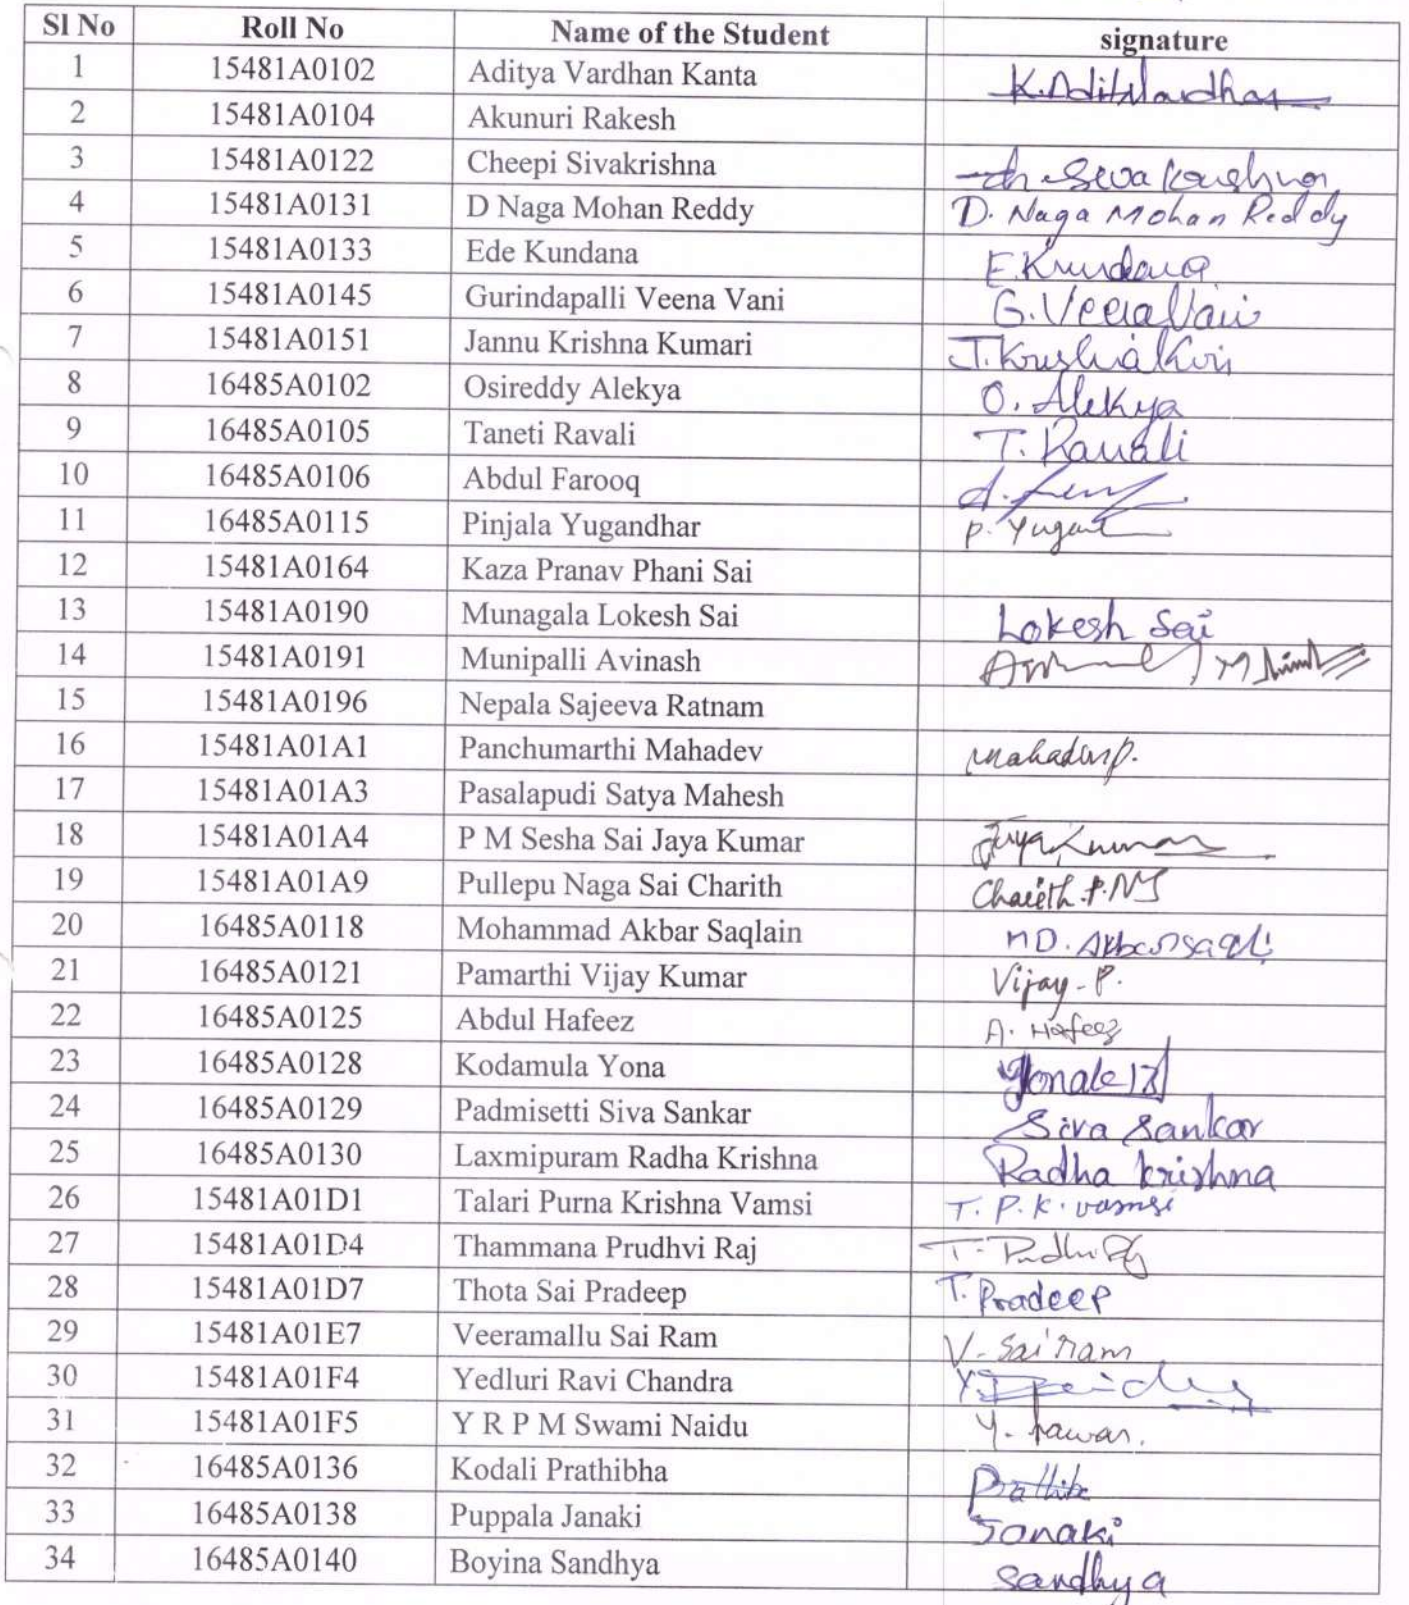 Sl No Roll No Name of the Student signature
1 15481A0102 Aditya Vardhan Kanta K.Aditya Vardhan
2 15481A0104 Akunuri Rakesh
3 15481A0122 Cheepi Sivakrishna ch. Siva Krishna
4 15481A0131 D Naga Mohan Reddy D. Naga Mohan Reddy
5 15481A0133 Ede Kundana E.Kundana
6 15481A0145 Gurindapalli Veena Vani G.Veena Vani
7 15481A0151 Jannu Krishna Kumari J.Krishna
8 16485A0102 Osireddy Alekya O. Alekya
9 16485A0105 Taneti Ravali T. Ravali
10 16485A0106 Abdul Farooq A.
11 16485A0115 Pinjala Yugandhar P.
12 15481A0164 Kaza Pranav Phani Sai
13 15481A0190 Munagala Lokesh Sai Lokesh Sai
14 15481A0191 Munipalli Avinash
15 15481A0196 Nepala Sajeeva Ratnam
16 15481A01A1 Panchumarthi Mahadev Mahadev.P.
17 15481A01A3 Pasalapudi Satya Mahesh
18 15481A01A4 P M Sesha Sai Jaya Kumar JayaKumar
19 15481A01A9 Pullepu Naga Sai Charith Charith.P.NS
20 16485A0118 Mohammad Akbar Saqlain MD.
21 16485A0121 Pamarthi Vijay Kumar Vijay-P.
22 16485A0125 Abdul Hafeez A. Hafeez
23 16485A0128 Kodamula Yona
24 16485A0129 Padmisetti Siva Sankar Siva Sankar
25 16485A0130 Laxmipuram Radha Krishna Radha krishna
26 15481A01D1 Talari Purna Krishna Vamsi T. P. K. vamsi
27 15481A01D4 Thammana Prudhvi Raj T.
28 15481A01D7 Thota Sai Pradeep T. Pradeep
29 15481A01E7 Veeramallu Sai Ram V. Sai ram
30 15481A01F4 Yedluri Ravi Chandra
31 15481A01F5 Y R P M Swami Naidu Y. Pawan.
32 16485A0136 Kodali Prathibha
33 16485A0138 Puppala Janaki Janaki
34 16485A0140 Boyina Sandhya Sandhya